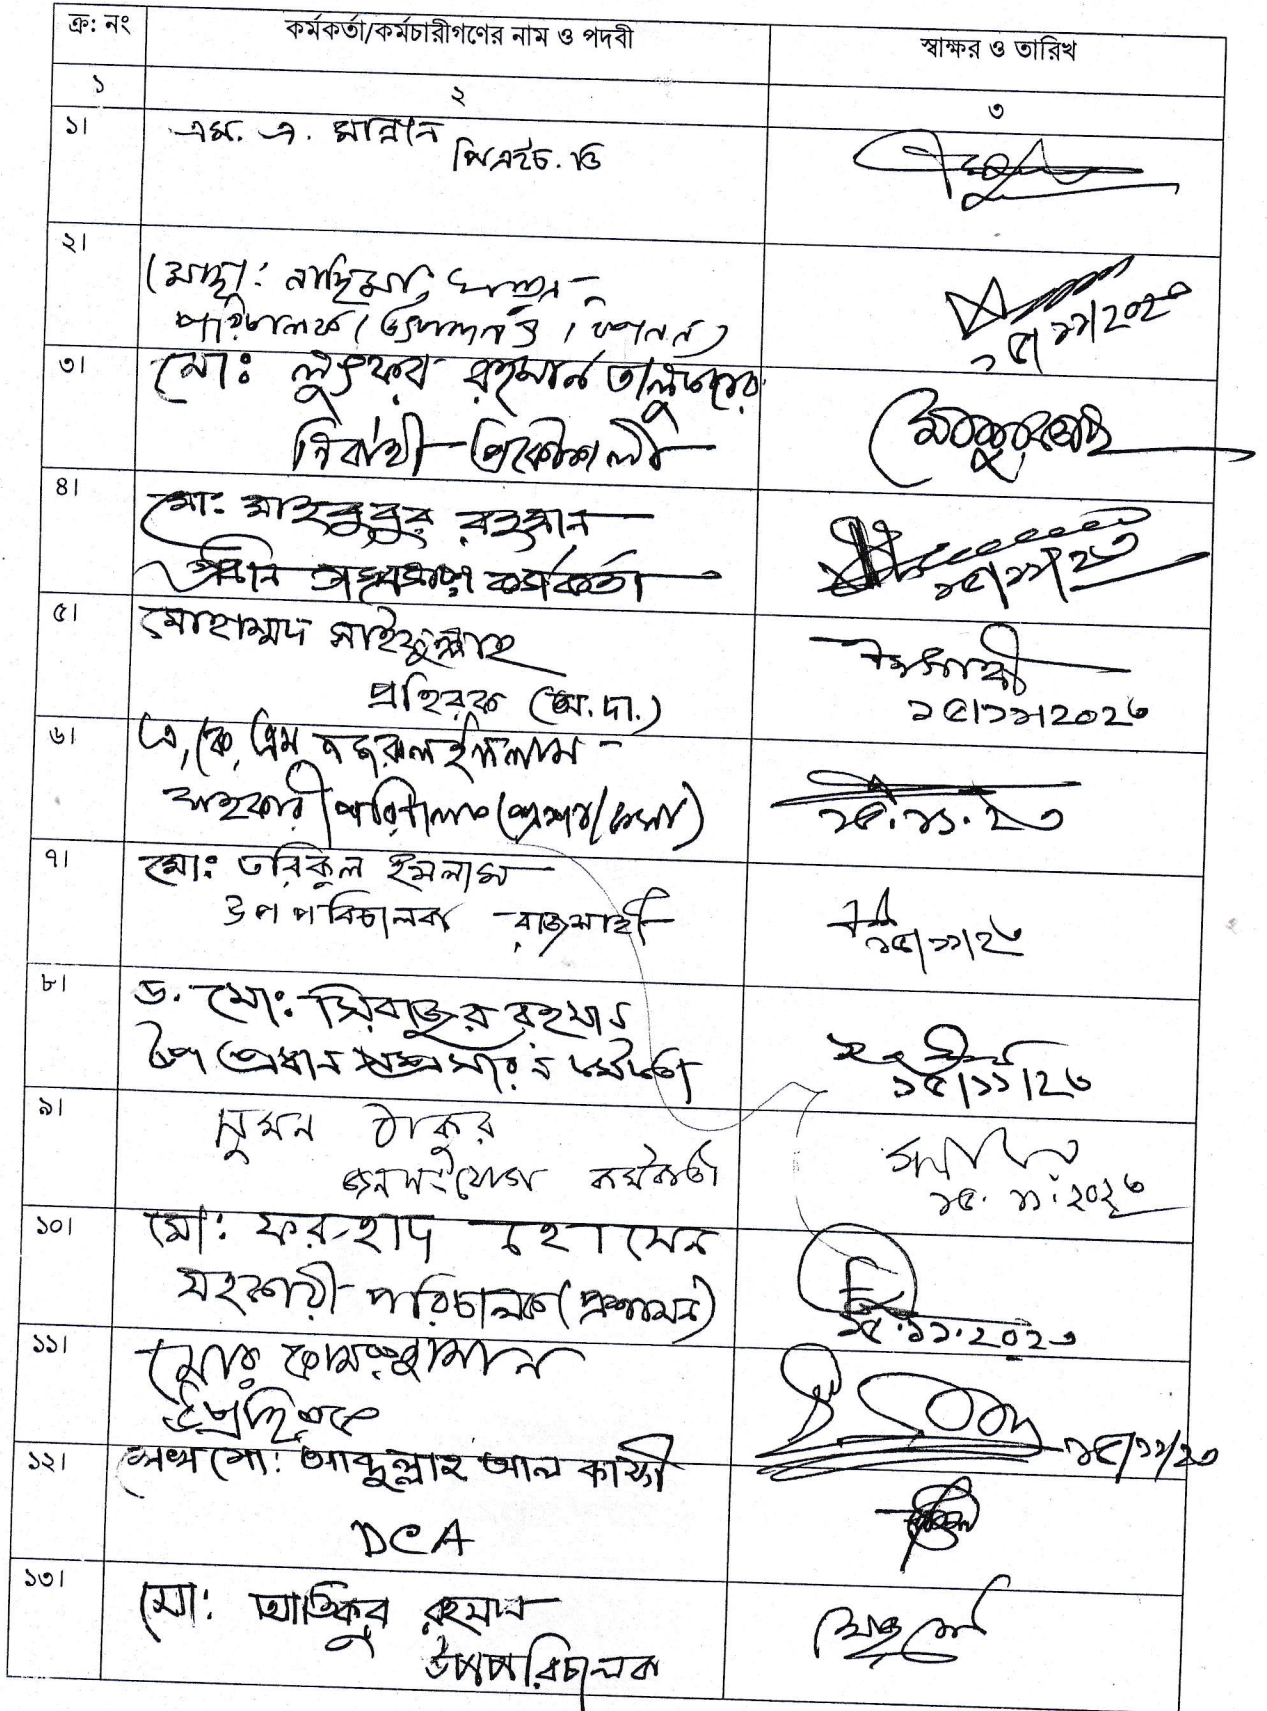 ক্র: নং কর্মকর্তা/কর্মচারীগণের নাম ও পদবী স্বাক্ষর ও তারিখ
১ ২ ৩
১। এম. এ. মান্নান
পিএইচ. ডি
২।
মোছা: নাছিমা
পরিচালক (উৎপাদন ও বিপনন)
১৫/১১/২০২৩
৩। মো: লুৎফর রহমান তালুকদার
নির্বাহী প্রকৌশলী
৪। মো: মাহবুবুর রহমান
প্রধান সম্প্রসারণ কর্মকর্তা
১৫/১১/২৩
৫। মোহাম্মদ সাইফুল্লাহ
(অ.দা.)
১৫/১১/২০২৩
৬। এ, কে, এম, নজরুল ইসলাম
সহকারী পরিচালক
১৫.১১.২৩
৭। মো: তরিকুল ইসলাম
উপপরিচালক রাজশাহী
১৫/১১/২৩
৮। ড. মো: সিরাজুর রহমান
উপ প্রধান সম্প্রসারন কর্মকর্তা
১৫/১১/২৩
৯। সুমন ঠাকুর
জনসংযোগ কর্মকর্তা
১৫.১১.২০২৩
১০। মো: ফরহাদ হোসেন
সহকারী পরিচালক (প্রশাসন)
১৫.১১.২০২৩
১১।
১৫/১১/২৩
১২। শেখ মো: আব্দুল্লাহ আল কাফী
DCA
১৩।
মো: আতিকুর রহমান
উপপরিচালক